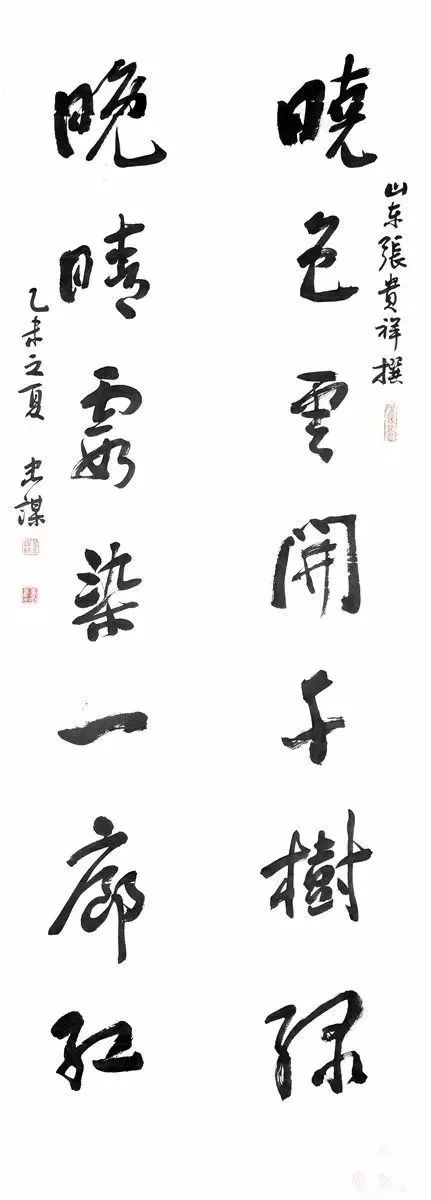 山东張貴祥撰
曉色雲開千樹緑
晚晴霞染一廊紅
乙未之夏 忠謀